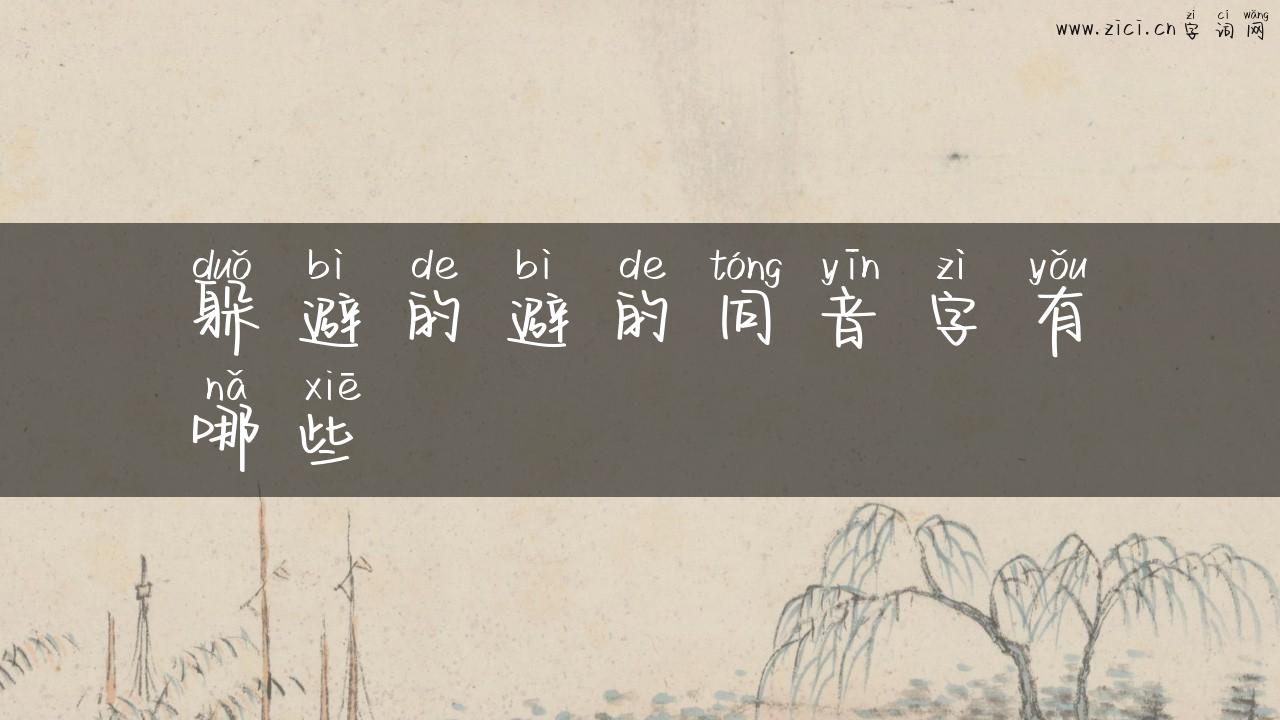 zì cí wǎng
www.zici.cn 字 词 网
duǒ bì de bì de tóng yīn zì yǒu
躲 避 的 避 的 同 音 字 有
nǎ xiē
哪 些